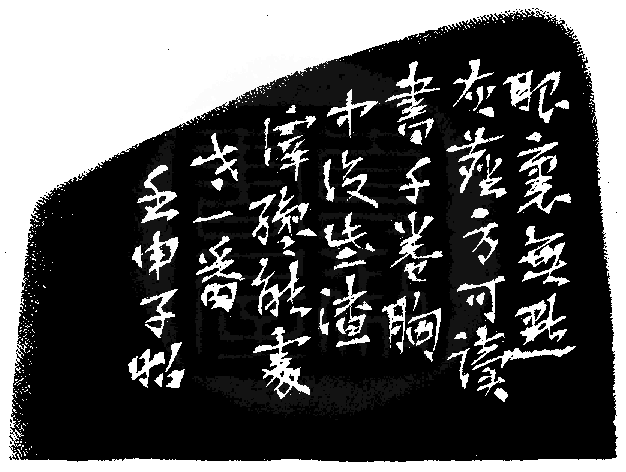 眼裏無點
灰塵方可讀
書千卷胸
中沒些渣
滓纔能處
世一番
壬申子